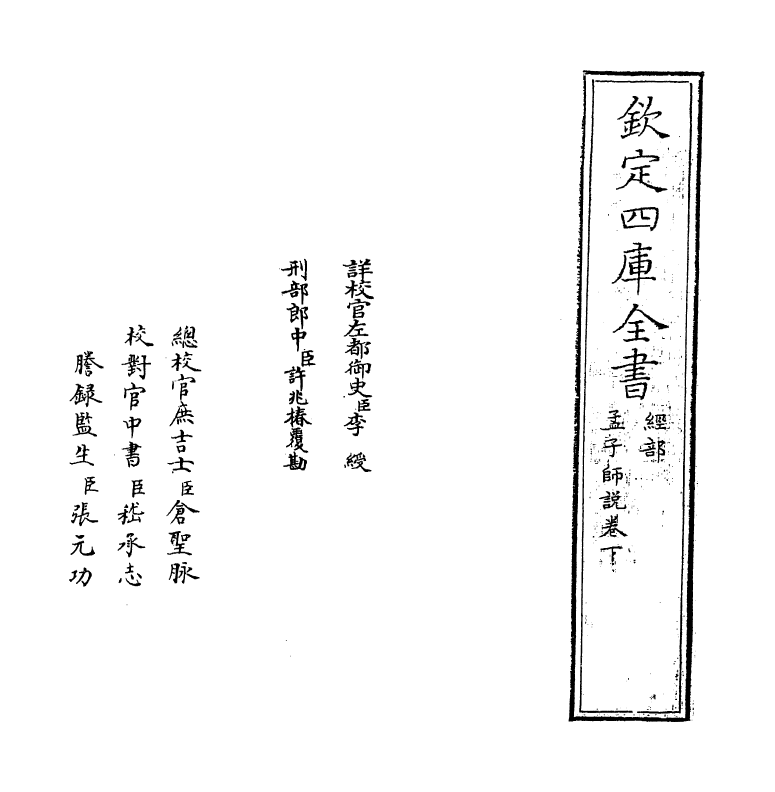 欽定四庫全書
經部
孟子師説卷下
詳校官左都御史臣李綬
刑部郎中臣許兆椿覆勘
總校官庶吉士臣倉聖脉
校對官中書臣嵇承志
謄録監生臣張元功